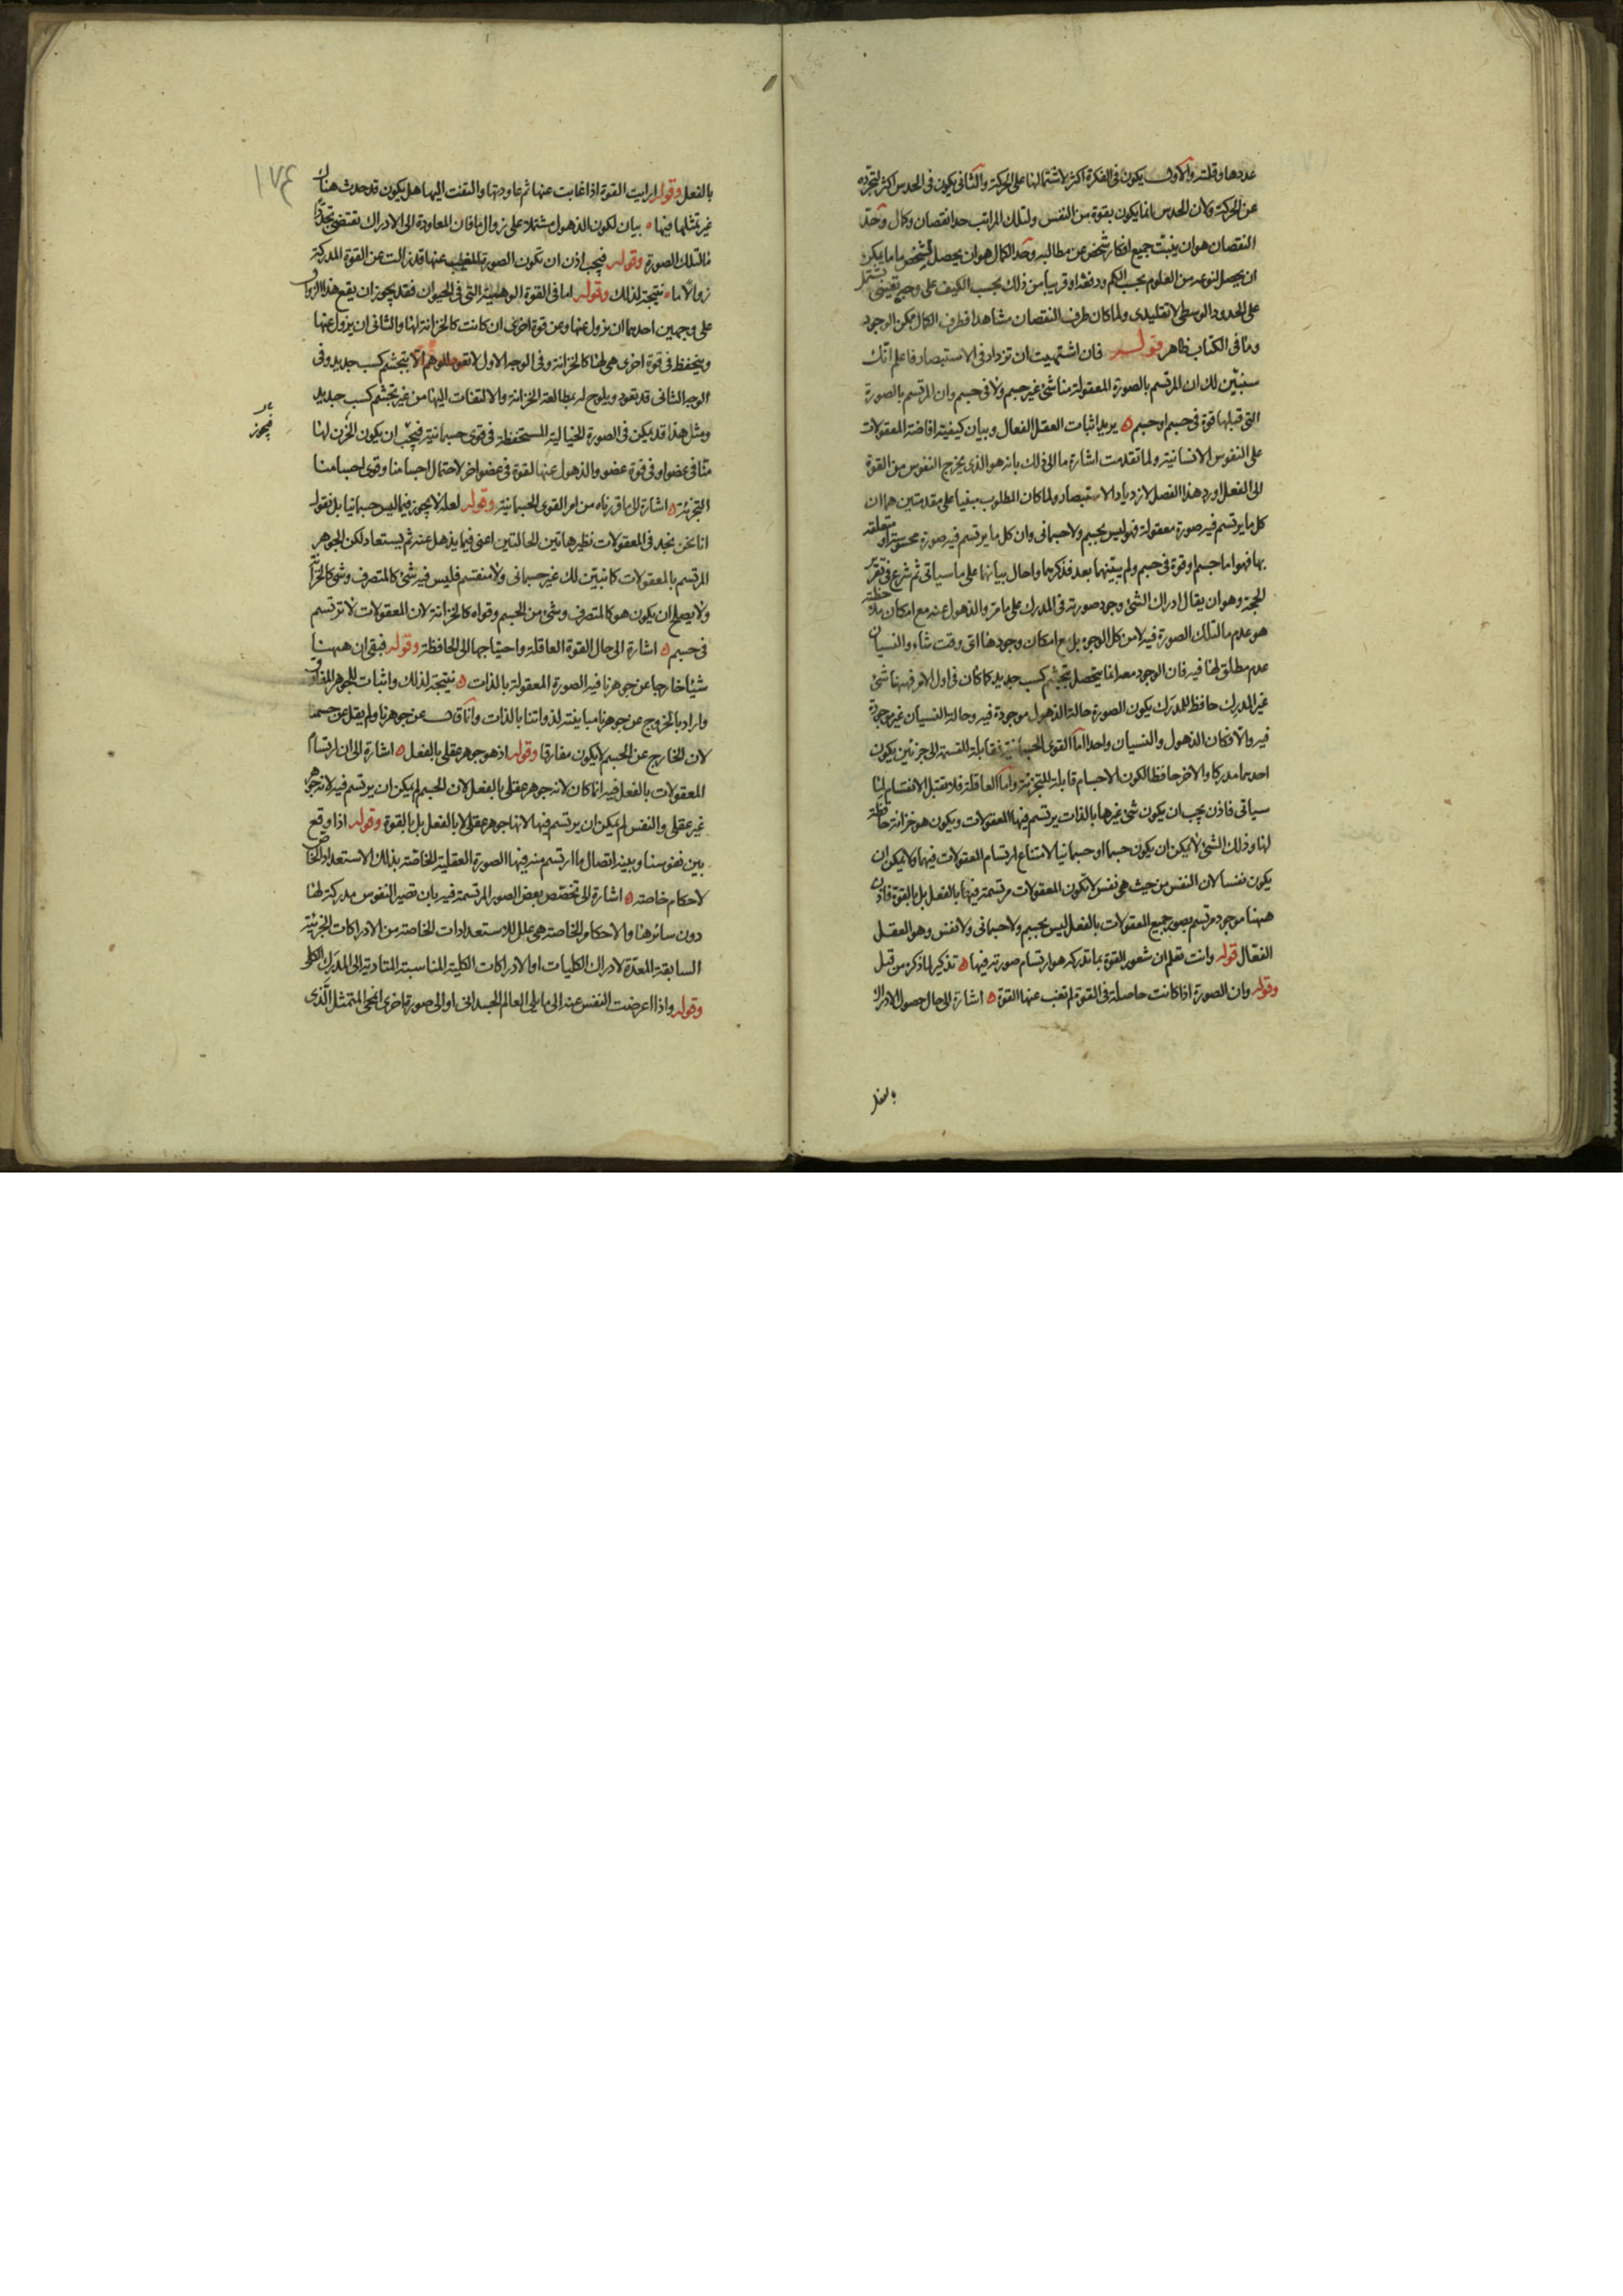 عددها وقلته والاول يكون فى الفكرة اكثر لاشتمالها على الحركة والثانى يكون فى الحدس اكثر لتجرده
عن الحركة ولان الحدس انما يكون بقوة من النفس ولتلك المراتب حدا نقصان وكمال وحد
النقصان هو ان ينبت جميع افكار شخص عن مطالبه وحد الكمال هو ان يحصل لشخص ما ما يمكن
ان يحصل لنوعه من العلوم بحسب الكم ودفعة او قريبا من ذلك بحسب الكيف على وجه يقينى يشتمل
على الحدود الوسطى لا تقليدى ولما كان طرف النقصان مشاهدا فطرف الكمال ممكن الوجود
وما فى الكتاب ظاهر قوله فان اشتهيت ان تزداد فى الاستبصار فاعلم انك
سنبين لك ان المرتسم بالصورة المعقولة منا شئ غير جسم ولا فى جسم وان المرتسم بالصورة
التى قبلها قوة فى جسم او جسم ه يريد اثبات العقل الفعال وبيان كيفية افاضته المعقولات
على النفوس الانسانية ولما تقدمت اشارة ما الى ذلك بانه هو الذى يخرج النفوس من القوة
الى الفعل اورد هذا الفصل لازدياد الاستبصار ولما كان المطلوب مبنيا على مقدمتين هما ان
كل ما يرتسم فيه صورة معقولة فهو ليس بجسم ولا جسمانى وان كل ما يرتسم فيه صورة محسوسة او متعلقة
بها فهو اما جسم او قوة فى جسم ولم يبينهما بعد فذكرهما واحال بيانهما على ما سياتى ثم شرع فى تقرير
الحجة وهو ان يقال ادراك الشئ وجود صورته فى المدرك على ما مر والذهول عنه مع امكان ملاحظته
هو عدم ما لتلك الصورة فيه لا من كل الوجوه بل مع امكان وجودها اى وقت شاء والنسيان
عدم مطلق لها فيه فان الوجود معه انما يتحصل بتجشم كسب جديد كما كان فى اول الامر فههنا شئ
غير المدرك حافظ للمدرك يكون الصورة حالة الذهول موجودة فيه وحالة النسيان غير موجودة
فيه والا فكان الذهول والنسيان واحدا اما القوى الجسمانية فقابلة القسمة الى جزئين يكون
احدهما مدركا والاخر حافظا لكون الاجسام قابلة للتجزئة واما العاقلة فلا تقبل الانقسام لما
سياتى فاذن يجب ان يكون شئ غيرها بالذات يرتسم فيها المعقولات ويكون هو خزانة حافظة
لها وذلك الشئ لا يمكن ان يكون جسما او جسمانيا لامتناع ارتسام المعقولات فيهما ولا يمكن ان
يكون نفسا لان النفس من حيث هى نفس لا تكون المعقولات مرتسمة فيها بالفعل بل بالقوة فاذن
ههنا موجود مرتسم بصور جميع المعقولات بالفعل ليس بجسم ولا جسمانى ولا نفس وهو العقل
الفعال قوله وانت تعلم ان شعور القوة بما تدركه هو ارتسام صورته فيها ه تذكير لما ذكره من قبل
وقوله وان الصورة اذا كانت حاصلة فى القوة لم تغب عنها القوة ه اشارة الى حال حصول الادراك
بالفعل
١٧٤
بالفعل وقوله ارايت القوة اذا غابت عنها ثم عاودتها والتفتت اليها هل يكون قد حدث هناك
غير تمثلها فيها ه بيان لكون الذهول مشتملا على زوال ما فان المعاودة الى الادراك تقتضى تجددا
ما لتلك الصورة وقوله فيجب اذن ان تكون الصورة المغيب عنها قد زالت عن القوة المدركة
زوالا ما ه نتيجة لذلك وقوله اما فى القوة الوهمية التى فى الحيوان فقد يجوز ان يقع هذا الزوال
على وجهين احدهما ان يزول عنها وعن قوة اخرى ان كانت كالخزانة لها والثانى ان يزول عنها
وينحفظ فى قوة اخرى هى لها كالخزانة وفى الوجه الاول لا تعود للوهم الا بتجشم كسب جديد وفى
الوجه الثانى قد تعود ويلوح له بمطالعة الخزانة والالتفات اليها من غير تجشم كسب جديد
ومثل هذا قد يمكن فى الصورة الخيالية المستحفظة فى قوى جسمانية فيجب ان يكون الخزن لها
فيجوز
منا فى عضو او فى قوة عضو والذهول عنها لقوة فى عضو اخر لاحتمال اجسامنا وقوى اجسامنا
التجزئة ه اشارة الى ما قررناه من امر القوى الجسمانية وقوله لعله لا يجوز فيما ليس جسمانيا بل نقوله
انا نحن نجد فى المعقولات نظير هاتين الحالتين اعنى فيما يذهل عنه ثم يستعاد لكن الجوهر
المرتسم بالمعقولات كما نبين لك غير جسمانى ولا منقسم فليس فيه شئ كالمتصرف وشئ كالخزانة
ولا يصلح ان يكون هو كالمتصرف وشئ من الجسم وقواه كالخزانة لان المعقولات لا ترتسم
فى جسم ه اشارة الى حال القوة العاقلة واحتياجها الى الحافظة وقوله فبقى ان ههنا
شيئا خارجا عن جوهرنا فيه الصورة المعقولة بالذات ه نتيجة لذلك واثبات للجوهر المفارق
واراد بالخروج عن جوهرنا مباينته لذواتنا بالذات وانما قال عن جوهرنا ولم يقل عن جسمنا
لان الخارج عن الجسم لا يكون مفارقا وقوله اذ هو جوهر عقلى بالفعل ه اشارة الى ان ارتسام
المعقولات بالفعل فيه انما كان لانه جوهر عقلى بالفعل لان الجسم لم يمكن ان يرتسم فيه لانه جوهر
غير عقلى والنفس لم يمكن ان يرتسم فيها لانها جوهر عقلى لا بالفعل بل بالقوة وقوله اذا وقع
بين نفوسنا وبينه اتصال ما ارتسم منه فيها الصورة العقلية الخاصة بذلك الاستعداد الخاص
لاحكام خاصة ه اشارة الى تخصص بعض الصور المرتسمة فيه بان تصير النفوس مدركة لها
دون سائرها والاحكام الخاصة هى علل للاستعدادات الخاصة من الادراكات الجزئية
السابقة المعدة لادراك الكليات او الادراكات الكلية المناسبة المتادية الى المدرك الكلى
وقوله واذا اعرضت النفس عنه الى ما يلى العالم الجسدانى او الى صورة اخرى انمحى المتمثل الذى